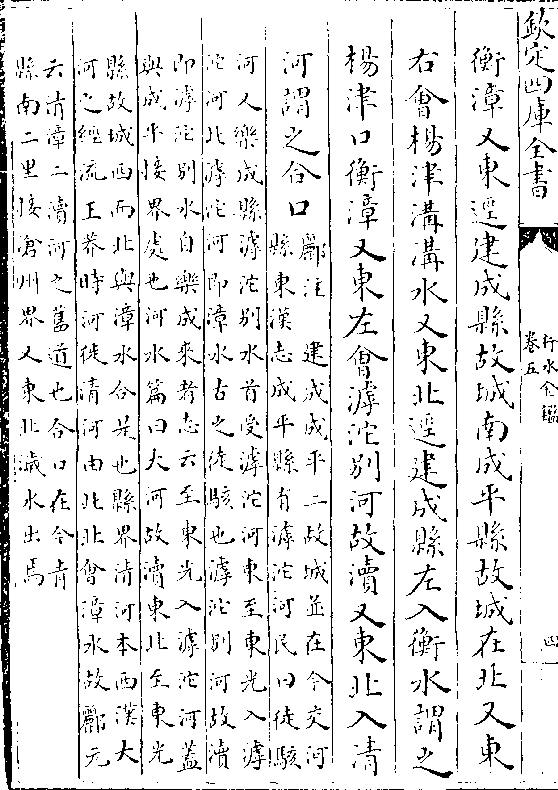 欽定四庫全書
行水金鑑
卷五
四
衡漳又東逕建成縣故城南成平縣故城在北又東
右會楊津溝溝水又東北逕建成縣左入衡水謂之
楊津口衡漳又東左會滹沱別河故瀆又東北入清
河謂之合口
酈注建成成平二故城並在今交河
縣東漢志成平縣有滹沱河民曰徒駭
河又樂成縣滹沱別水首受滹沱河東至東光入滹
沱河北滹沱河即漳水古之徒駭也滹沱別河故瀆
即滹沱別水自樂成來者志云至東光入滹沱河蓋
與成平接界處也河水篇曰大河故瀆東北至東光
縣故城西而北與漳水合是也縣界清河本西漢大
河之經流王莽時河徙清河由此北會漳水故酈元
云清漳二瀆河之舊道也合口在今青
縣南二里接滄州界又東北濊水出焉